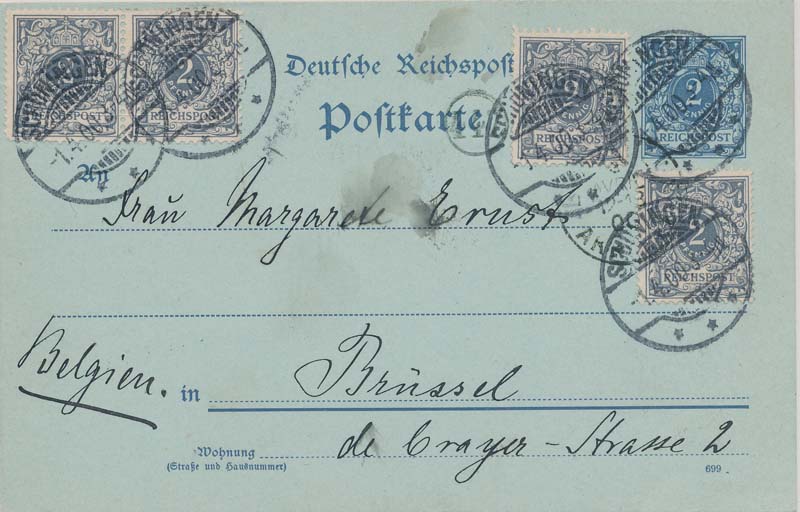 Deutsche Reichspost
Postkarte
An
Frau Margarete Ernst
Belgien. in Brüssel
Wohnung de Crayer-Strasse 2
(Straße und Hausnummer)
699
REICHSPOST
2
REICHSPOST
2
REICHSPOST
2
PFENNIG
REICHSPOST
2
REICHSPOST